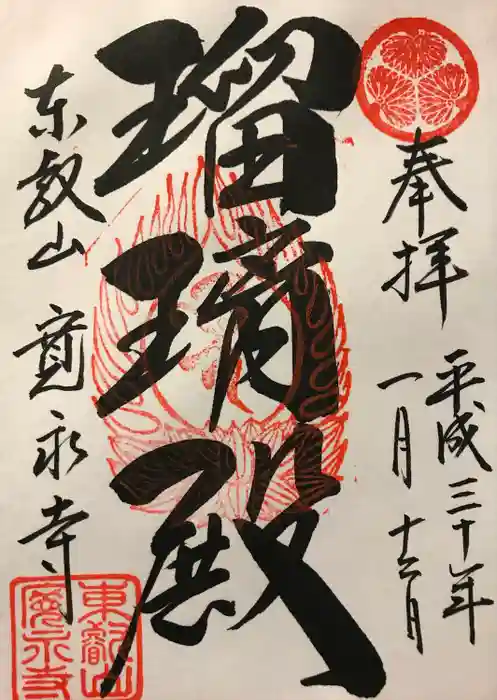 奉拝
平成三十年
一月
瑠璃殿
東叡山 寛永寺
東叡山
寛永寺